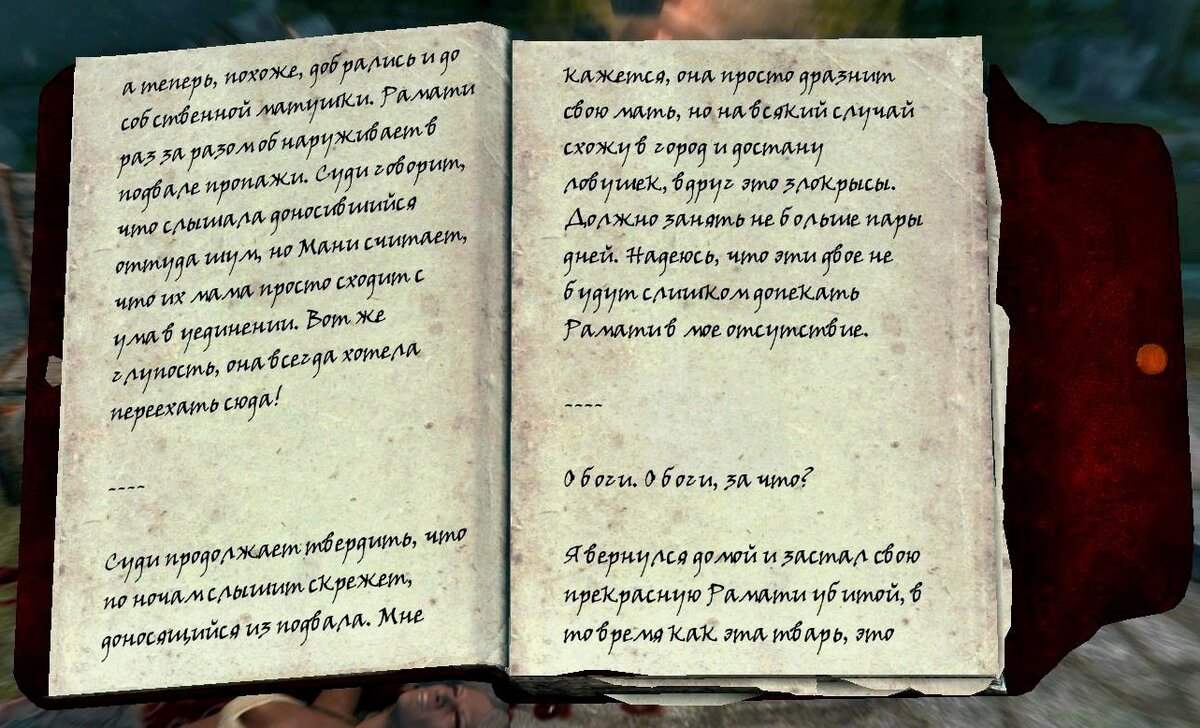 а теперь, похоже, добрались и до
собственной матушки. Рамати
раз за разом обнаруживает в
подвале пропажи. Суди говорит,
что слышала доносившийся
оттуда шум, но Мани считает,
что их мама просто сходит с
ума в уединении. Вот же
глупость, она всегда хотела
переехать сюда!
----
Суди продолжает твердить, что
по ночам слышит скрежет,
доносящийся из подвала. Мне
кажется, она просто дразнит
свою мать, но на всякий случай
схожу в город и достану
ловушек, вдруг это злокрысы.
Должно занять не больше пары
дней. Надеюсь, что эти двое не
будут слишком допекать
Рамати в мое отсутствие.
----
О боги. О боги, за что?
Я вернулся домой и застал свою
прекрасную Рамати убитой, в
то время как эта тварь, это